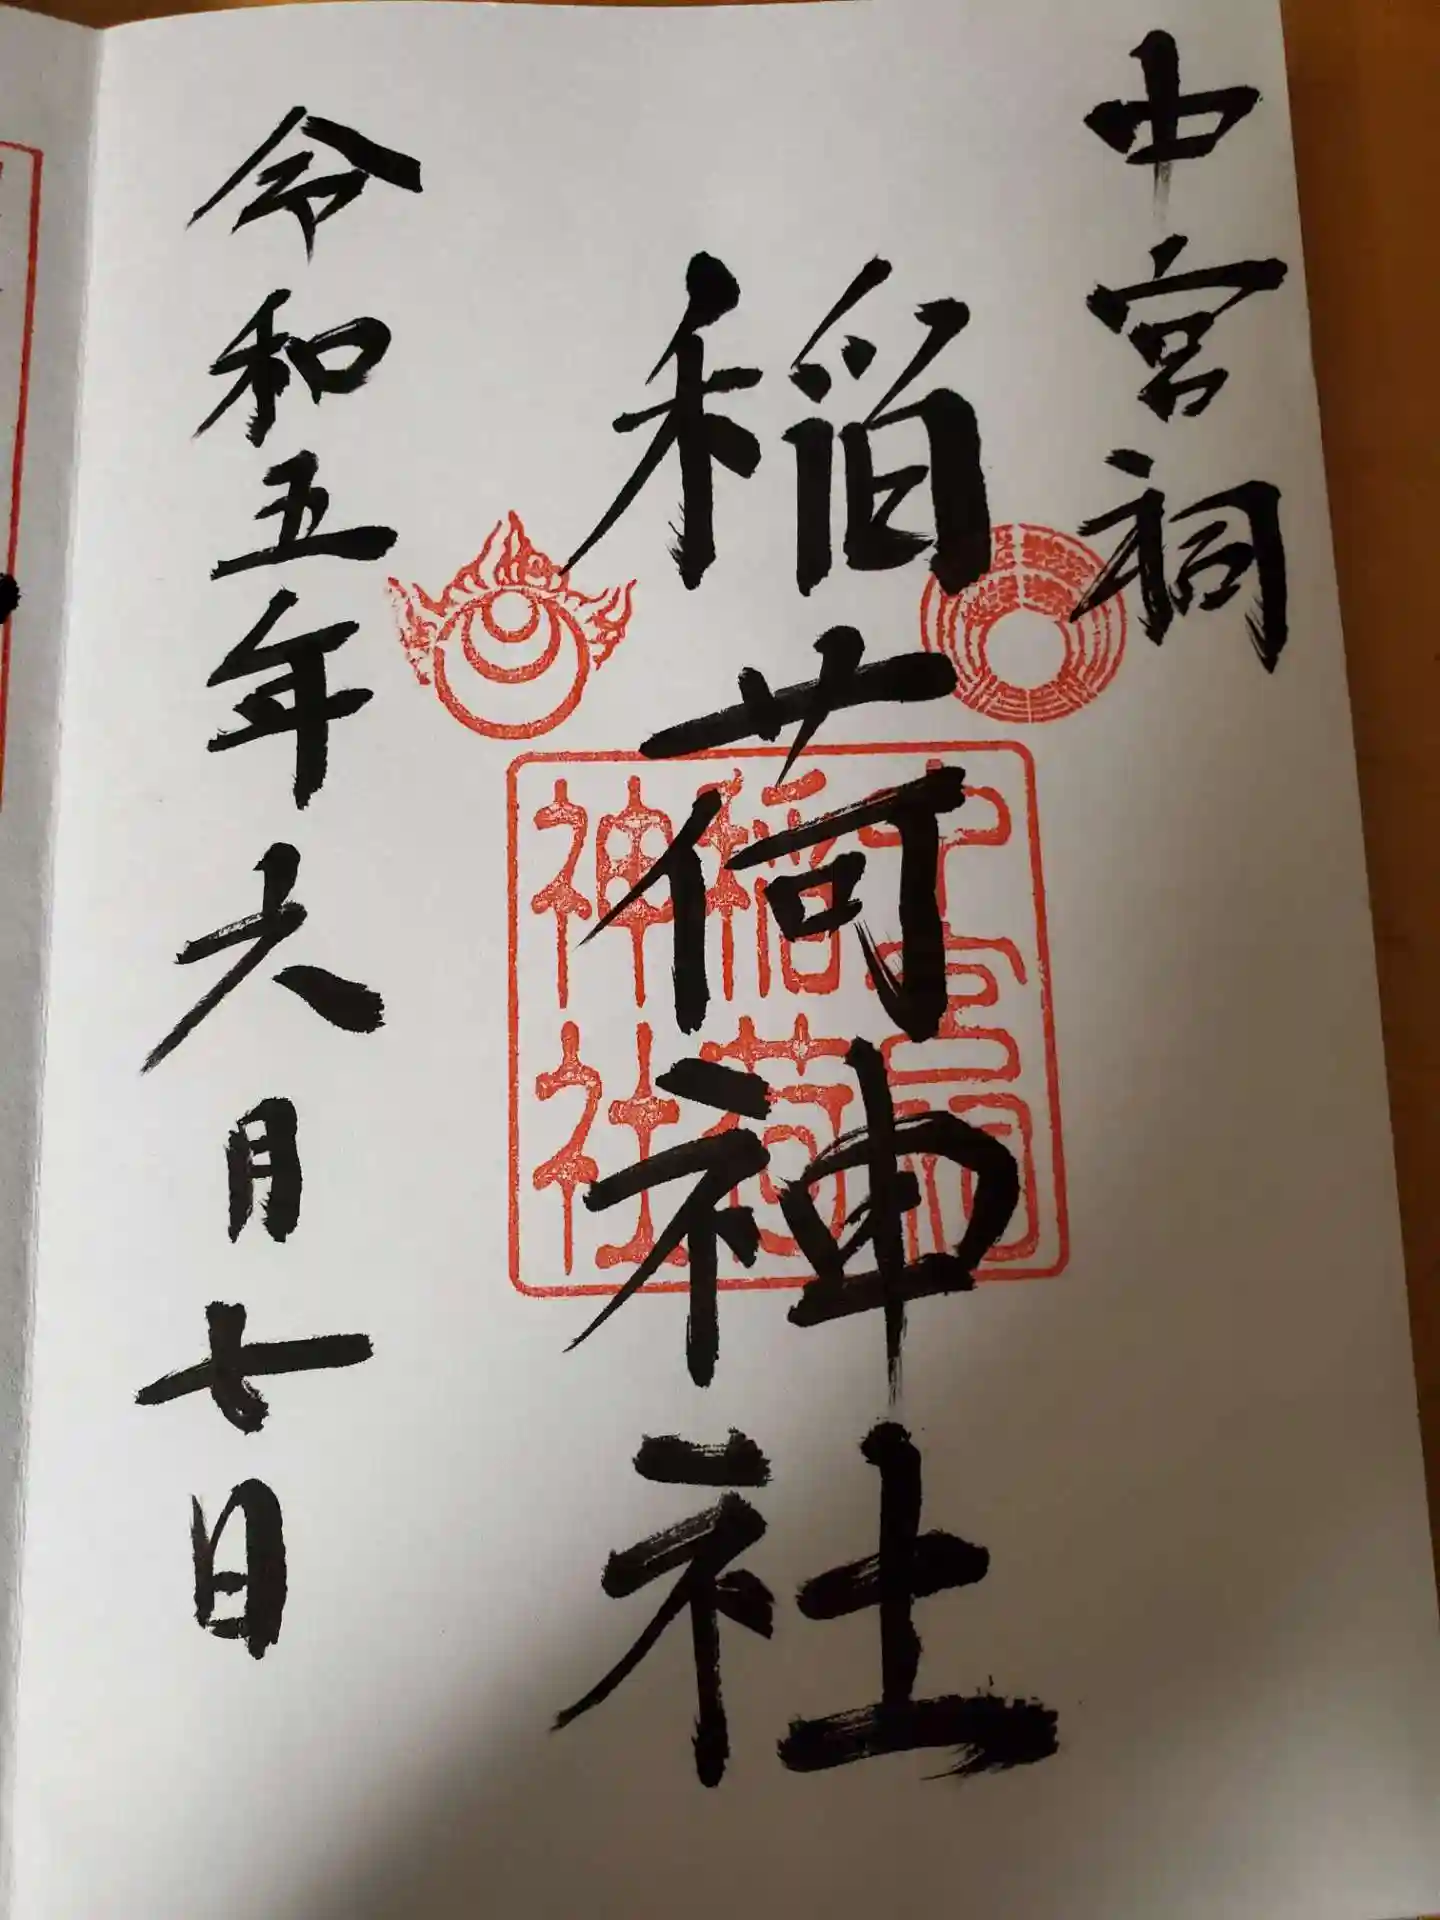 中宮祠
稲荷神社
令和五年六月七日
中宮祠
稲荷
神社